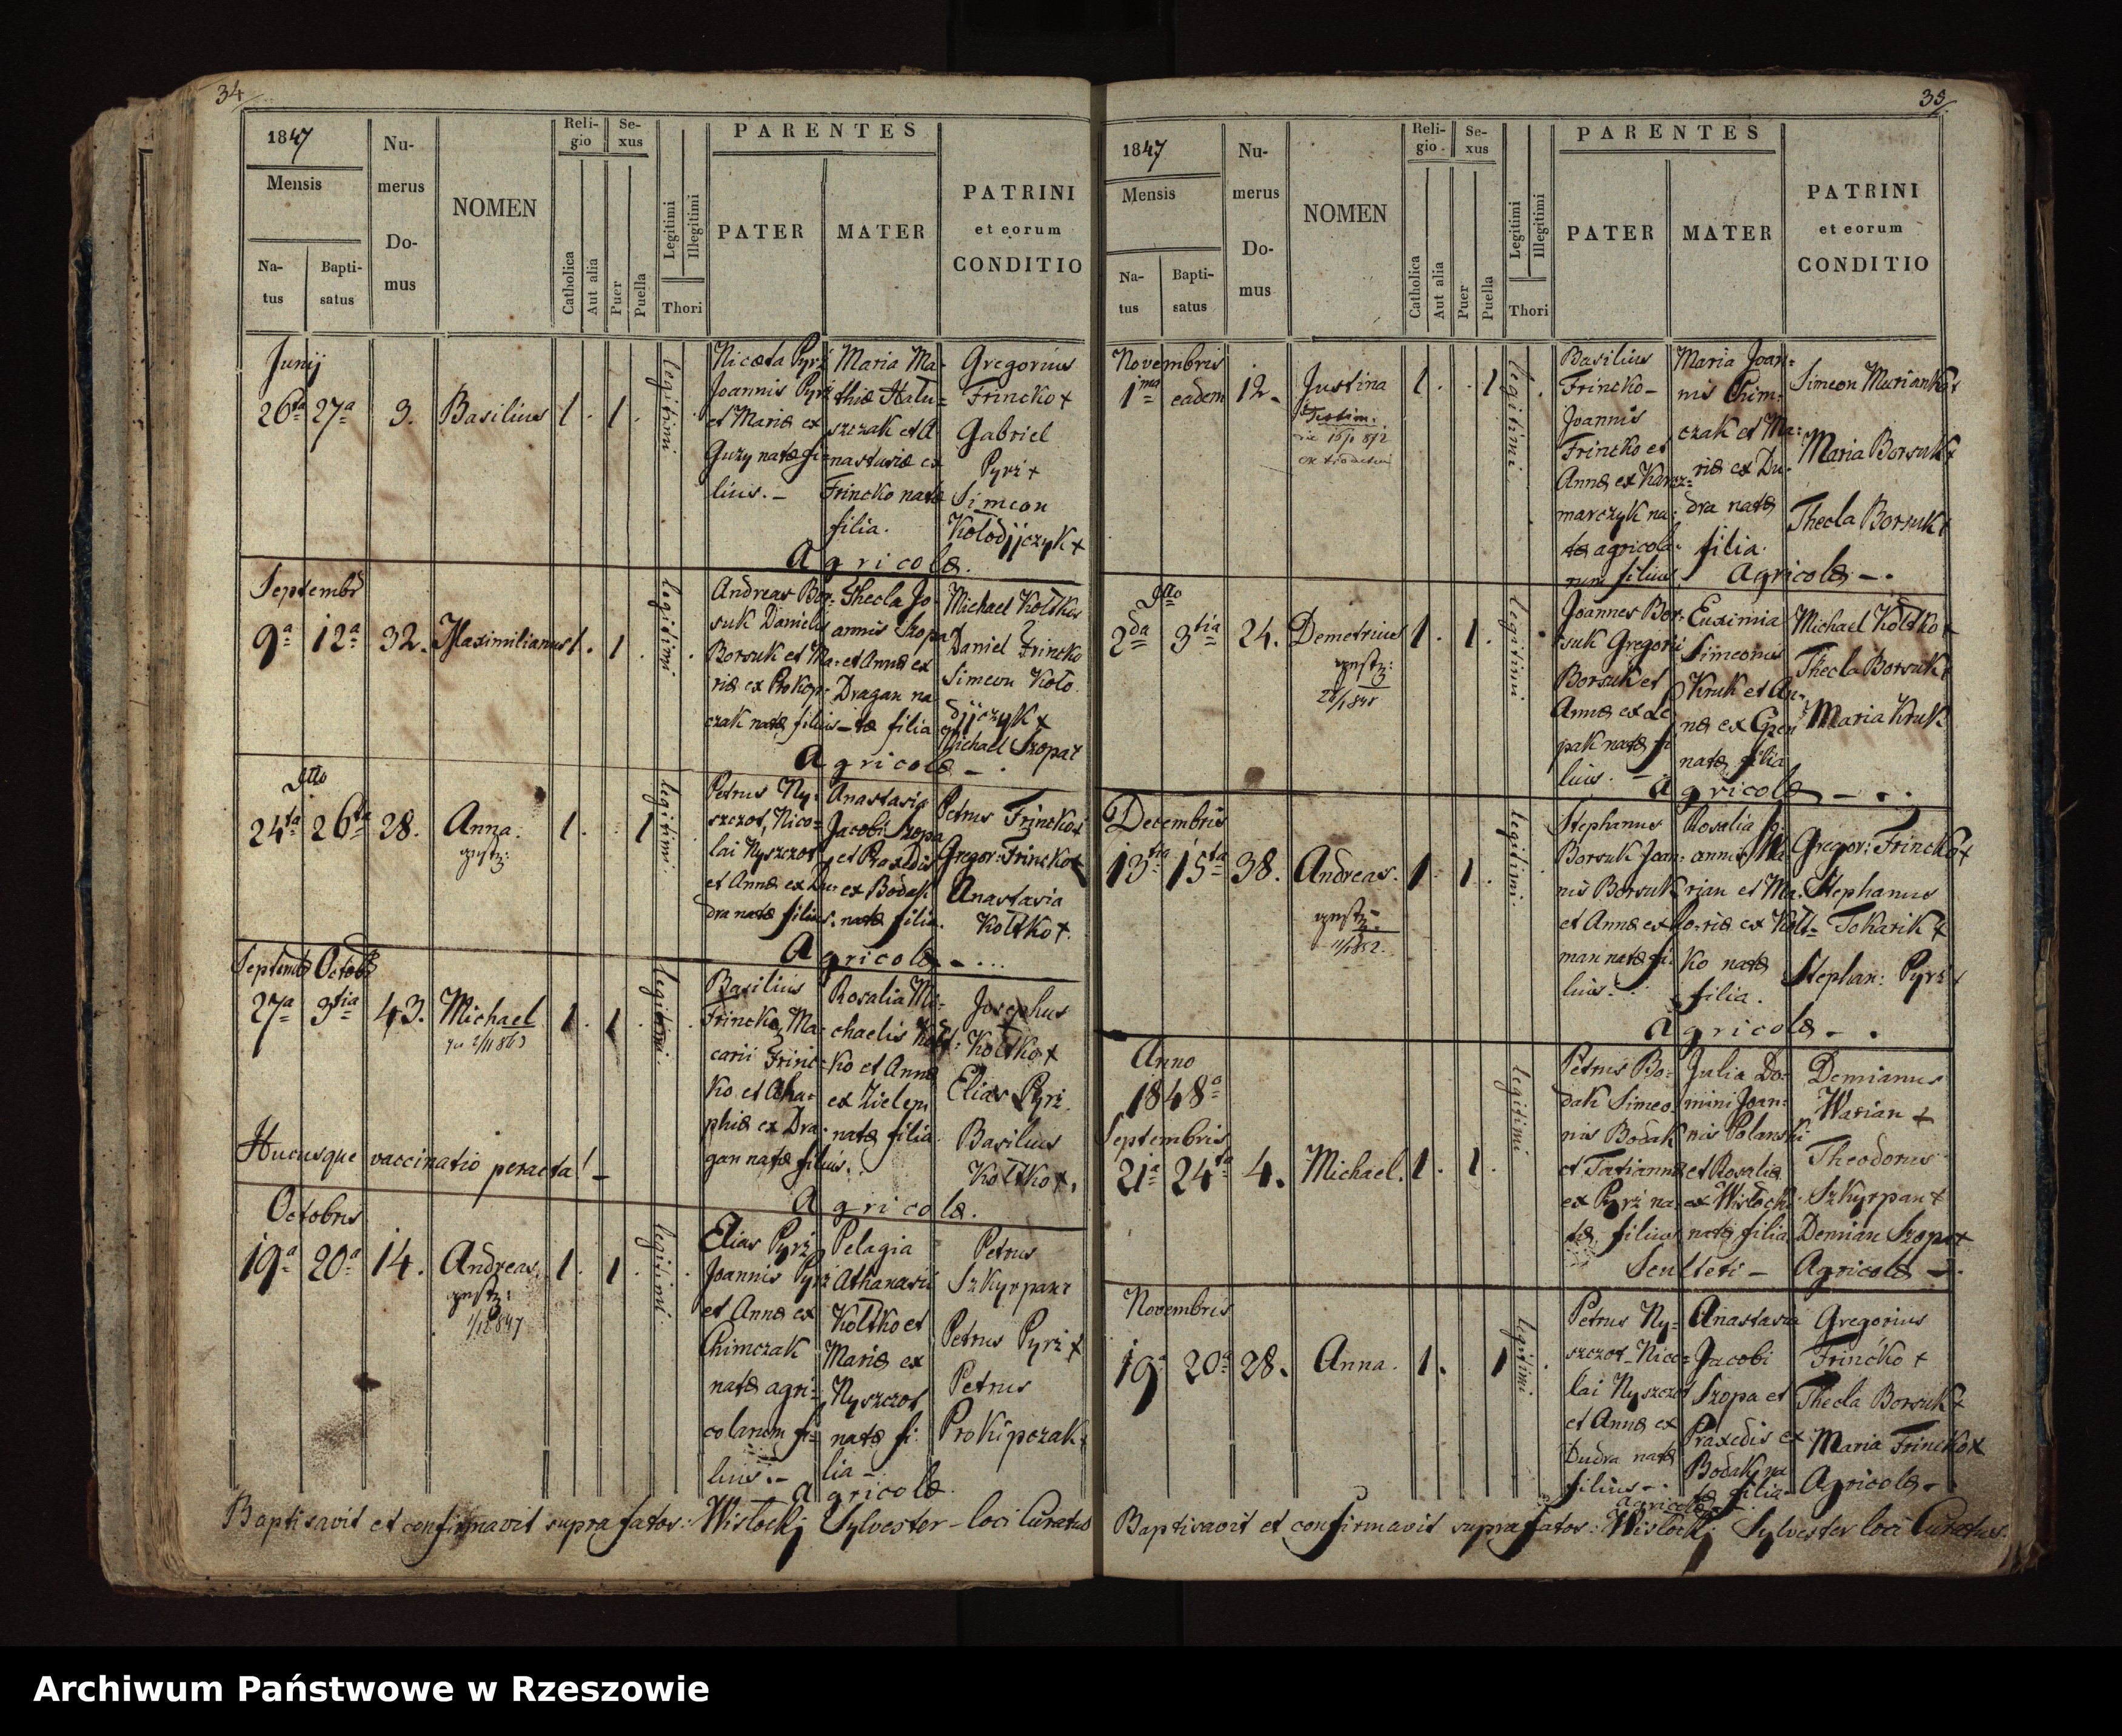 34
1847
Mensis
Na-
tus
Bapti-
satus
Nu-
merus
Do-
mus
NOMEN
Reli-
gio
Catholica
Aut alia
Se-
xus
Puer
Puella
Legitimi
Illegitimi
Thori
PARENTES
PATER
MATER
PATRINI
et eorum
CONDITIO
Junij
26ta 27a 3. Basilius 1 . 1 .
legitimi
Nicæta Pyrż
Joannis Pyrż
et Mariæ ex
Guzy natæ fi-
lius. –
Maria Ma-
thiæ Hału=
szczak et A
nastasiæ ex
Frincko natæ
filia.
Gregorius
Frincko +
Gabriel
Pyrż +
Simeon
Kołodijczyk +
Agricolæ.
Septembr
9a 12a 32. Maximilianus 1 . 1 .
legitimi
Andreas Bor-
suk Danielis
Borsuk et Ma-
riæ ex Prokop-
czak natæ filius
Thecla Jo-
annis Szopa
et Annæ ex
Dragan na-
tæ filia
Michael Kołtko
Daniel Frincko
Simeon Koło
dijczyk +
Michael Szopa +
Agricolæ – .
24ta 26ta 28. Anna. 1 . . 1
legitimi.
Petrus Ny-
szczot, Nico=
lai Nyszczot
et Annæ ex Du-
dra natæ filius.
Anastasia
Jacobi Szopa
et Praxedis
ex Bodak
natæ filia.
Petrus Frincko +
Gregor: Frincko +
Anastasia
Kołtko +.
Agricolæ – . . .
Septemb Octob
27a 3tia 43. Michael 1 . 1 .
legitimi.
Basilius
Frincko, Ma-
carii Frinc-
ko et Aha-
phiæ ex Dra-
gan natæ filius.
Rosalia Mi-
chaelis Kołt-
ko et Annæ
ex Zielem
natæ filia.
Josephus
Kołtko +
Elias Pyrż
Basilius
Kołtko +.
Hucusque vaccinatio peracta! –
Agricolæ.
Octobris
19a 20a 14. Andreas. 1 . 1 .
1/12 847
legitimi
Elias Pyrż
Joannis Pyrż
et Annæ ex
Chimczak
natæ agri-
colarum fi=
lius. –
Pelagia
Athanasii
Kołtko et
Mariæ ex
Nyszczot
natæ fi-
lia –
Petrus
Szkyrpan +
Petrus Pyrż +
Petrus
Prokipczak +
Agricolæ
Baptisavit et confirmavit supra fatos: Wisłocki Sylvester – loci Curatus
35
1847
Mensis
Na-
tus
Bapti-
satus
Nu-
merus
Do-
mus
NOMEN
Reli-
gio
Catholica
Aut alia
Se-
xus
Puer
Puella
Legitimi
Illegitimi
Thori
PARENTES
PATER
MATER
PATRINI
et eorum
CONDITIO
Novembris
1ma eadem 12. Justina 1 . . 1
legitimi.
Basilius
Frincko –
Joannis
Frincko et
Annæ ex Karcz-
marczyk na-
tæ agricola-
rum filius
Maria Joan=
nis Chim-
czak et Ma-
riæ ex Du-
dra natæ
filia.
Simeon Murianka +
Maria Borsuk +
Thecla Borsuk +
Agricolæ – .
2da 3tia 24. Demetrius 1 . 1 .
legitimi
Joannes Bor-
suk Gregorii
Borsuk et
Annæ ex Le-
pak natæ fi-
lius. –
Euximia
Simeonis
Kruk et An-
næ ex Gzen
natæ filia
Michael Kołtko +
Thecla Borsuk +
Maria Kruk
Agricolæ – . .
Decembris
13tia 15ta 38. Andreas. 1 . 1 .
legitimi.
Stephanus
Borsuk Joan-
nis Borsuk
et Annæ ex Ro-
man natæ fi-
lius.
Rosalia Jo-
annis Wa-
rian et Ma-
riæ ex Kołt-
ko natæ
filia.
Gregor: Frincko +
Stephanus
Tokarik +
Stephan: Pyrż +
Agricolæ – .
Anno
1848o
Septembris
21a 24ta 4. Michael. 1 . 1 .
legitimi
Petrus Bo-
dak Simeo-
nis Bodak
et Tatiannæ
ex Pyrż na-
tæ filius
Julia Do-
mini Joan-
nis Polanski
et Rosaliæ
ex Wisłocki
natæ filia
Demianus
Warian +
Theodorus
Szkyrpan +
Demian Szopa +
Sculteti – Agricolæ – .
Novembris
19a 20a 28. Anna. 1 . . 1
legitimi
Petrus Ny-
szczot – Nico-
lai Nyszczot
et Annæ ex
Dudra natæ
filius – .
Anastasia
Jacobi
Szopa et
Praxedis ex
Bodak na-
tæ filia –
Gregorius
Frincko +
Thecla Borsuk +
Maria Frincko +
Agricolæ –
Agricolæ –
Baptisavit et confirmavit supra fatos: Wisłocki Sylvester loci Curatus.
Archiwum Państwowe w Rzeszowie